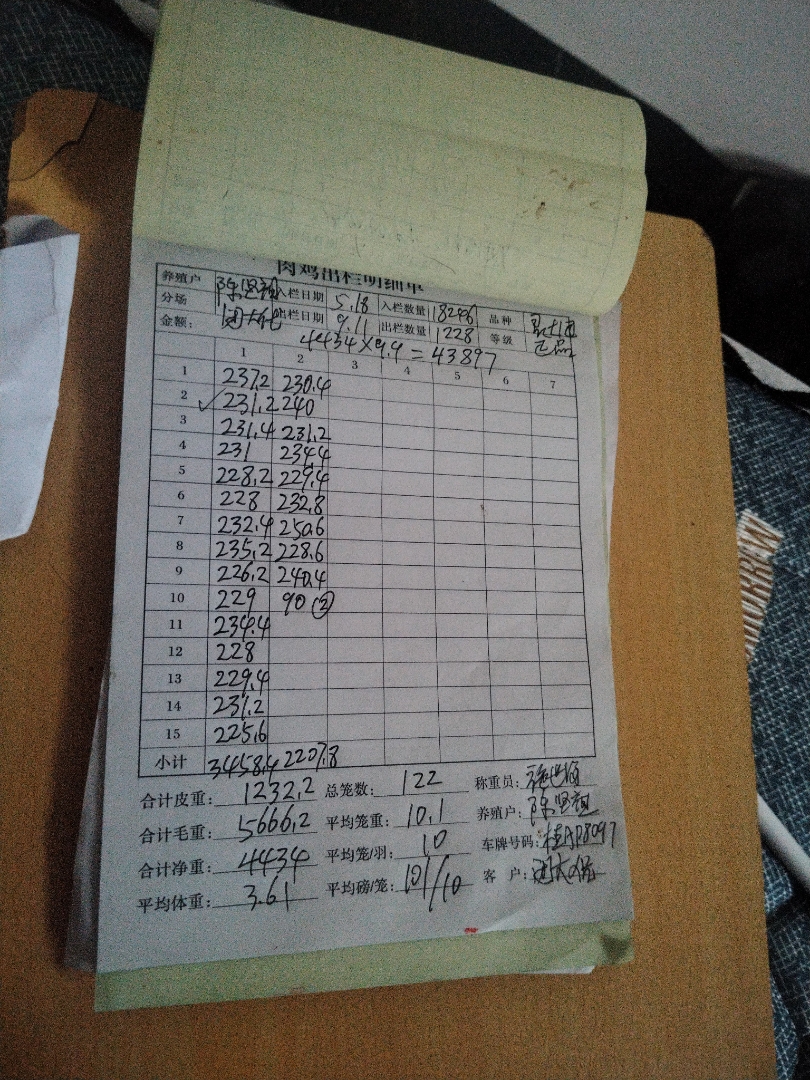 肉鸡出栏明细单
养殖户 陈坚祖 入栏日期 5.18 入栏数量 18296 品种
分场 出栏日期 9.11 出栏数量 1228 等级 正品
金额: 4434×9.9=43897
1 2 3 4 5 6 7
1 237.2 230.4
2 ✓231.2 240
3 231.4 231.2
4 231 234.4
5 228.2 229.4
6 228 232.8
7 232.4 250.6
8 235.2 228.6
9 226.2 240.4
10 229 90 ②
11 234.4
12 228
13 229.4
14 231.2
15 225.6
小计 3458.4 2207.8
合计皮重: 1232.2 总笼数: 122 称重员:
合计毛重: 5666.2 平均笼重: 10.1 养殖户: 陈坚祖
合计净重: 4434 平均笼/羽: 10 车牌号码: 桂AP8097
平均体重: 3.61 平均磅/笼: 101/10 客 户: